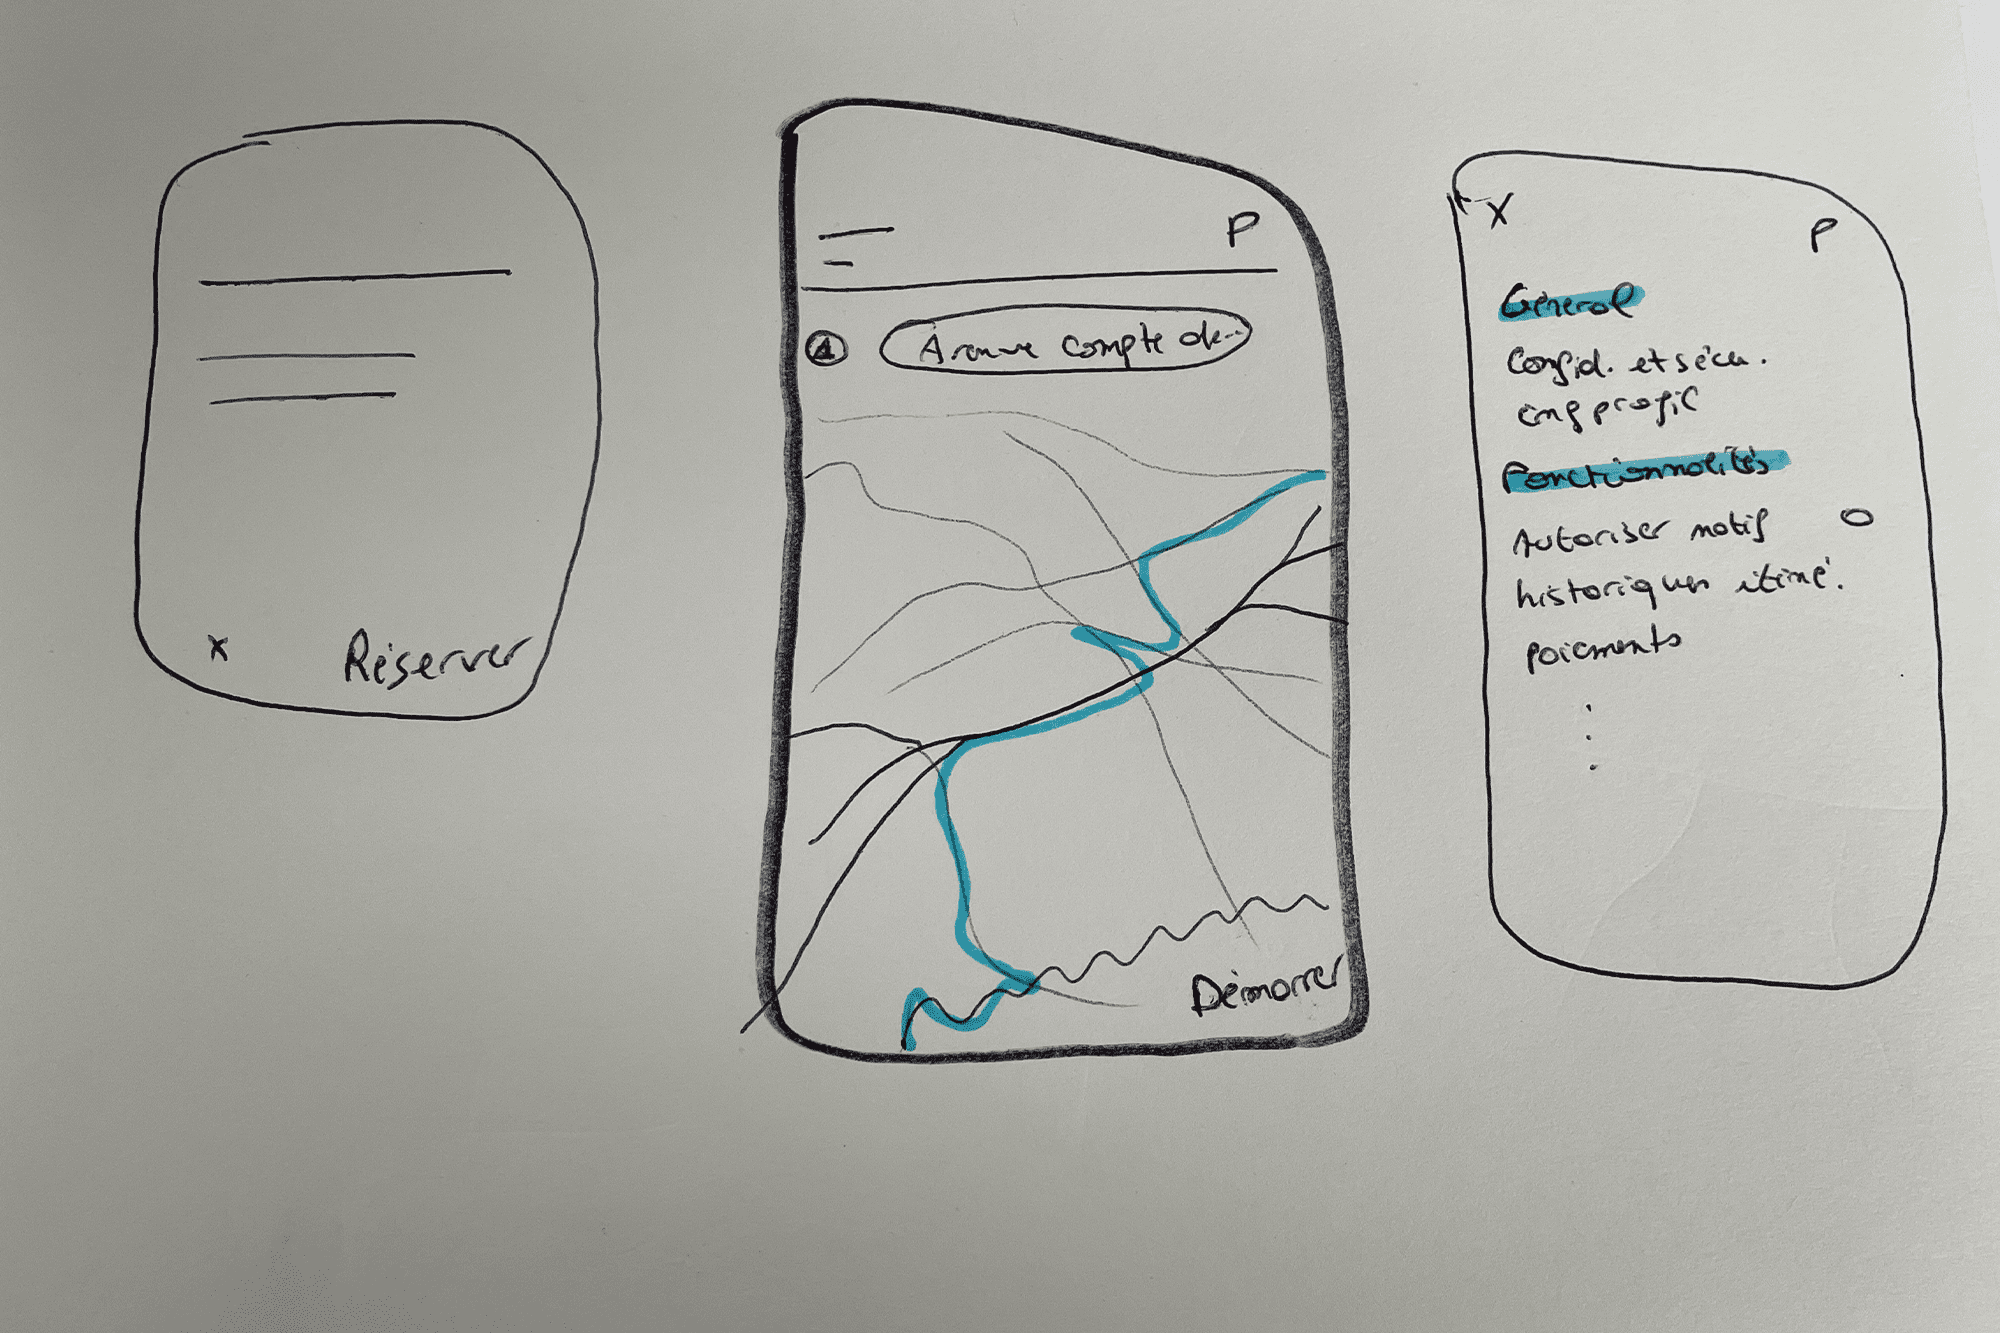 x
Réserver
P
A
Avenue compte de...
Démarrer
X
P
Général
Confid. et sécu.
profil
Fonctionnalités
Autoriser notif
historiques itiné.
paiements